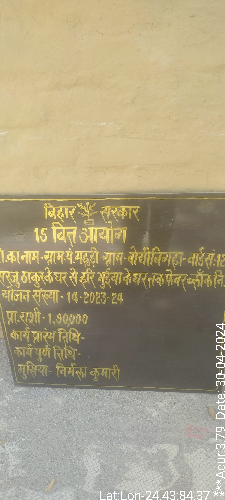 बिहार सरकार
15 वित्त आयोग
यो.का नाम-ग्राम पं.
ठाकुर के घर से हरि भुईया के घर तक पेवर ब्लॉक नि.
योजना संख्या-14-2023-24
प्रा.राशी-1,90000
कार्य प्रारंभ तिथि-
कार्य पूर्ण तिथि-
मुखिया- निर्मला कुमारी
Lat:Lon-24.43:84.37
***Acur:3.79 Date: 30-04-2024